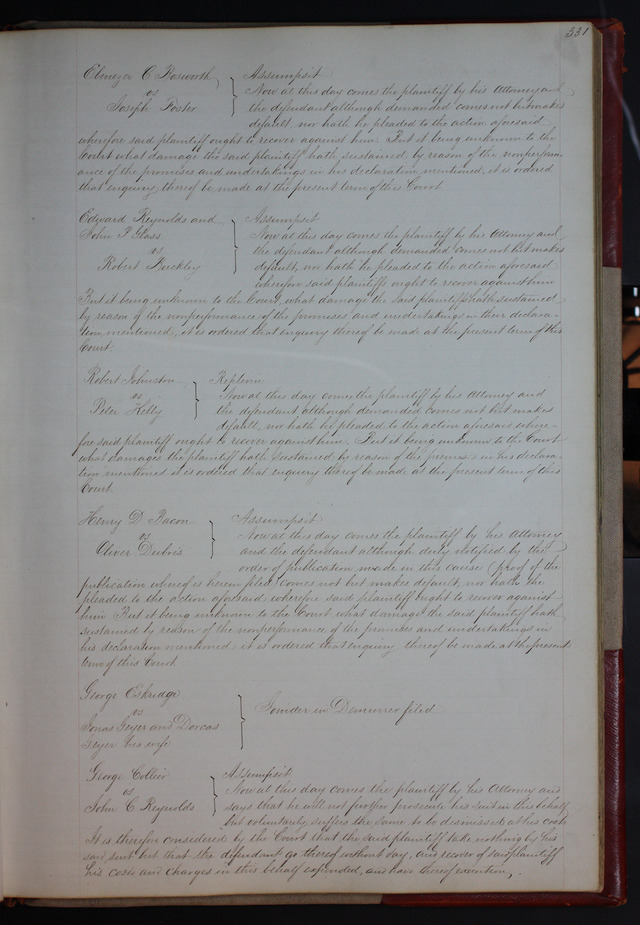 331
Ebenezer C Bosworth } Assumpsit
vs Now at this day comes the plaintiff by his Attorney and
Joseph Foster the defendant although demanded comes not but makes
default, nor hath he pleaded to the action aforesaid
wherefore said plaintiff ought to recover against him. But it being unknown to the
Court what damage the said plaintiff hath sustained by reason of the nonperform-
ance of the promises and undertakings in his declaration mentioned, it is ordered
that enquiry thereof be made at the present term of this Court
Edward Reynolds and } Assumpsit
John P Glass Now at this day comes the plaintiff by his Attorney and
vs the defendant although demanded comes not but makes
Robert Buckley default, nor hath he pleaded to the action aforesaid
wherefore said plaintiffs ought to recover against him
But it being unknown to the Court, what damage the said plaintiffs hath sustained
by reason of the nonperformance of the promises and undertakings in their declara-
tion, mentioned, it is ordered that enquiry thereof be made at the present term of this
Court.
Robert Johnston } Replevin
vs Now at this day comes the plaintiff by his Attorney and
Peter the defendant although demanded comes not but makes
default, nor hath he pleaded to the action aforesaid where-
fore said plaintiff ought to recover against him. But it being unknown to the Court
what damages the plaintiff hath sustained by reason of the premises in his declara-
tion mentioned it is ordered that enquiry thereof be made at the present term of this
Court.
Henry D Bacon } Assumpsit
vs Now at this day comes the plaintiff by his Attorney
Oliver Dubois and the defendant although duly notified by the
order of publication made in this cause (proof of the
publication whereof is herein filed) comes not but makes default, nor hath he
pleaded to the action aforesaid wherefore said plaintiff ought to recover against
him But it being unknown to the Court what damage the said plaintiff hath
sustained by reason of the nonperformance of the promises and undertakings in
his declaration mentioned it is ordered that enquiry thereof be made at the present
term of this Court.
George Eskridge
vs
Jonas Geyer and Dorcas } Joinder in Demurrer filed
Geyer his wife
George Collier } Assumpsit
vs Now at this day comes the plaintiff by his Attorney and
John C Reynolds says that he will not further prosecute his suit in this behalf
but voluntarily suffers the same to be dismissed at his costs
It is therefore considered by the Court that the said plaintiff take nothing by his
said suit but that the defendant go thereof without day, and recover of said plaintiff
his costs and charges in this behalf expended, and have thereof execution.